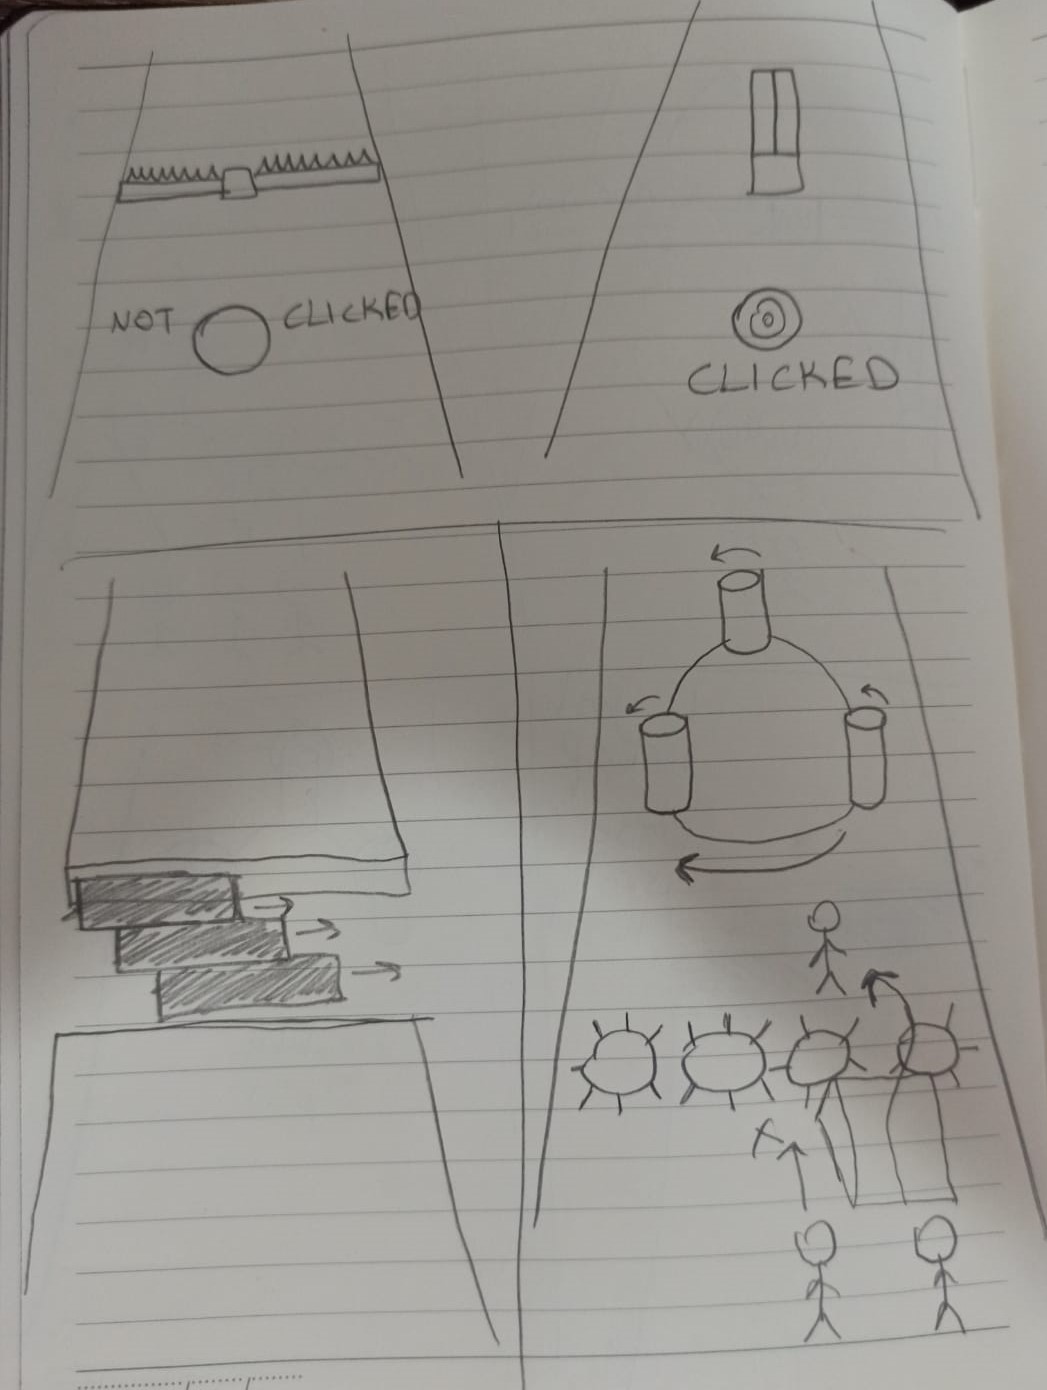 NOT CLICKED
CLICKED
X